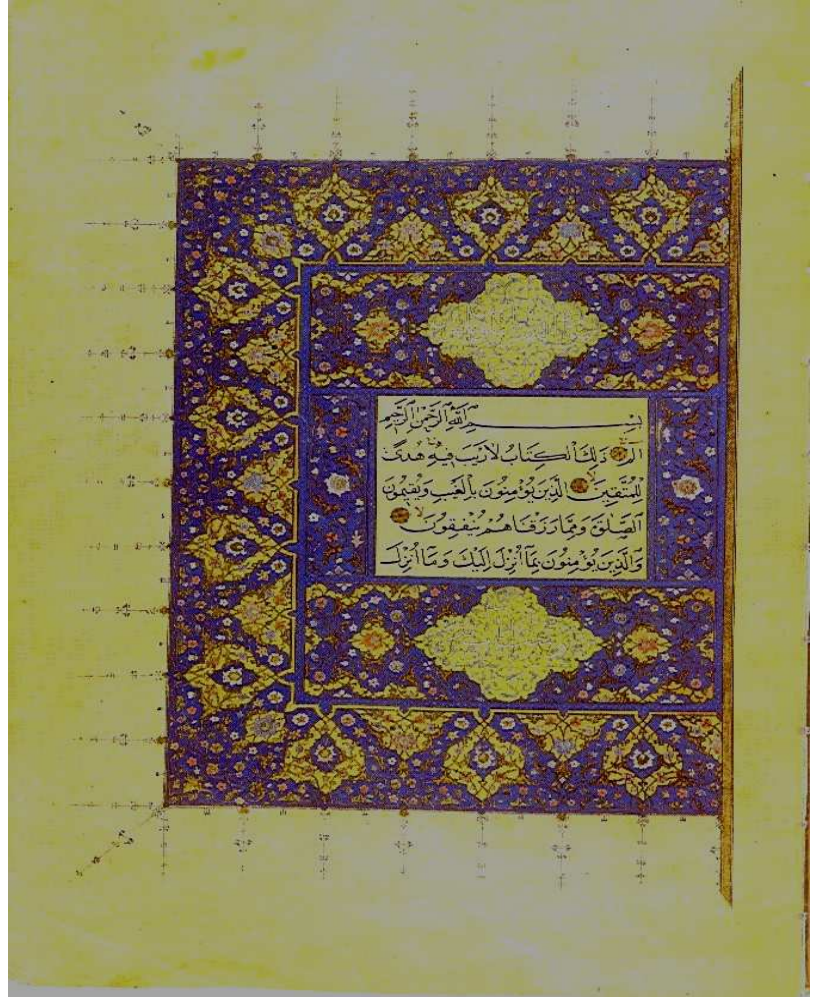 بِسْمِ اللَّهِ الرَّحْمَٰنِ الرَّحِيمِ
الم ذَٰلِكَ الْكِتَابُ لَا رَيْبَ فِيهِ هُدًى
لِلْمُتَّقِينَ الَّذِينَ يُؤْمِنُونَ بِالْغَيْبِ وَيُقِيمُونَ
الصَّلٰوةَ وَمِمَّا رَزَقْنَاهُمْ يُنْفِقُونَ
وَالَّذِينَ يُؤْمِنُونَ بِمَا أُنْزِلَ إِلَيْكَ وَمَا أُنْزِلَ